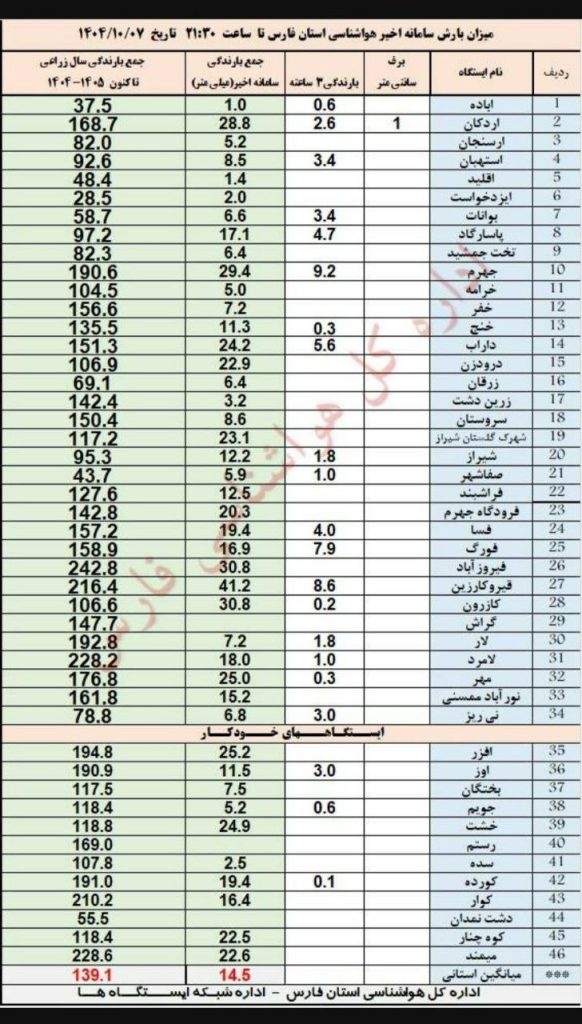 میزان بارش سامانه اخیر هواشناسی استان فارس تا ساعت ۲۱:۳۰ تاریخ ۱۴۰۴/۱۰/۰۷
ردیف نام ایستگاه برف سانتی متر بارندگی ۳ ساعته جمع بارندگی سامانه اخیر(میلی متر) جمع بارندگی سال زراعی تا کنون ۱۴۰۵-۱۴۰۴
۱ اباده 0.6 1.0 37.5
۲ اردکان 1 2.6 28.8 168.7
۳ ارسنجان 5.2 82.0
۴ استهبان 3.4 8.5 92.6
۵ اقلید 1.4 48.4
۶ ایزدخواست 2.0 28.5
۷ بوانات 3.4 6.6 58.7
۸ پاسارگاد 4.7 17.1 97.2
۹ تخت جمشید 6.4 82.3
۱۰ جهرم 9.2 29.4 190.6
۱۱ خرامه 5.0 104.5
۱۲ خفر 7.2 156.6
۱۳ خنج 0.3 11.3 135.5
۱۴ داراب 5.6 24.2 151.3
۱۵ درودزن 22.9 106.9
۱۶ زرقان 6.4 69.1
۱۷ زرین دشت 3.2 142.4
۱۸ سروستان 8.6 150.4
۱۹ شهرک گلستان شیراز 23.1 117.2
۲۰ شیراز 1.8 12.2 95.3
۲۱ صفاشهر 1.0 5.9 43.7
۲۲ فراشبند 12.5 127.6
۲۳ فرودگاه جهرم 20.3 142.8
۲۴ فسا 4.0 19.4 157.2
۲۵ فورگ 7.9 16.9 158.9
۲۶ فیروز آباد 30.8 242.8
۲۷ قیروکارزین 8.6 41.2 216.4
۲۸ کازرون 0.2 30.8 106.6
۲۹ گراش 147.7
۳۰ لار 1.8 7.2 192.8
۳۱ لامرد 1.0 18.0 228.2
۳۲ مهر 0.3 25.0 176.8
۳۳ نورآباد ممسنی 15.2 161.8
۳۴ نی ریز 3.0 6.8 78.8
ایستگاههای خودکار
۳۵ افزر 25.2 194.8
۳۶ اوز 3.0 11.5 190.9
۳۷ بختگان 7.5 117.5
۳۸ جویم 0.6 5.2 118.4
۳۹ خشت 24.9 118.8
۴۰ رستم 169.0
۴۱ سده 2.5 107.8
۴۲ کورده 0.1 19.4 191.0
۴۳ کوار 16.4 210.2
۴۴ دشت نمدان 55.5
۴۵ کوه چنار 22.5 118.4
۴۶ میمند 22.6 228.6
*** میانگین استانی 14.5 139.1
اداره کل هواشناسی استان فارس - اداره شبکه ایستگاه ها
اداره کل هواشناسی فارس